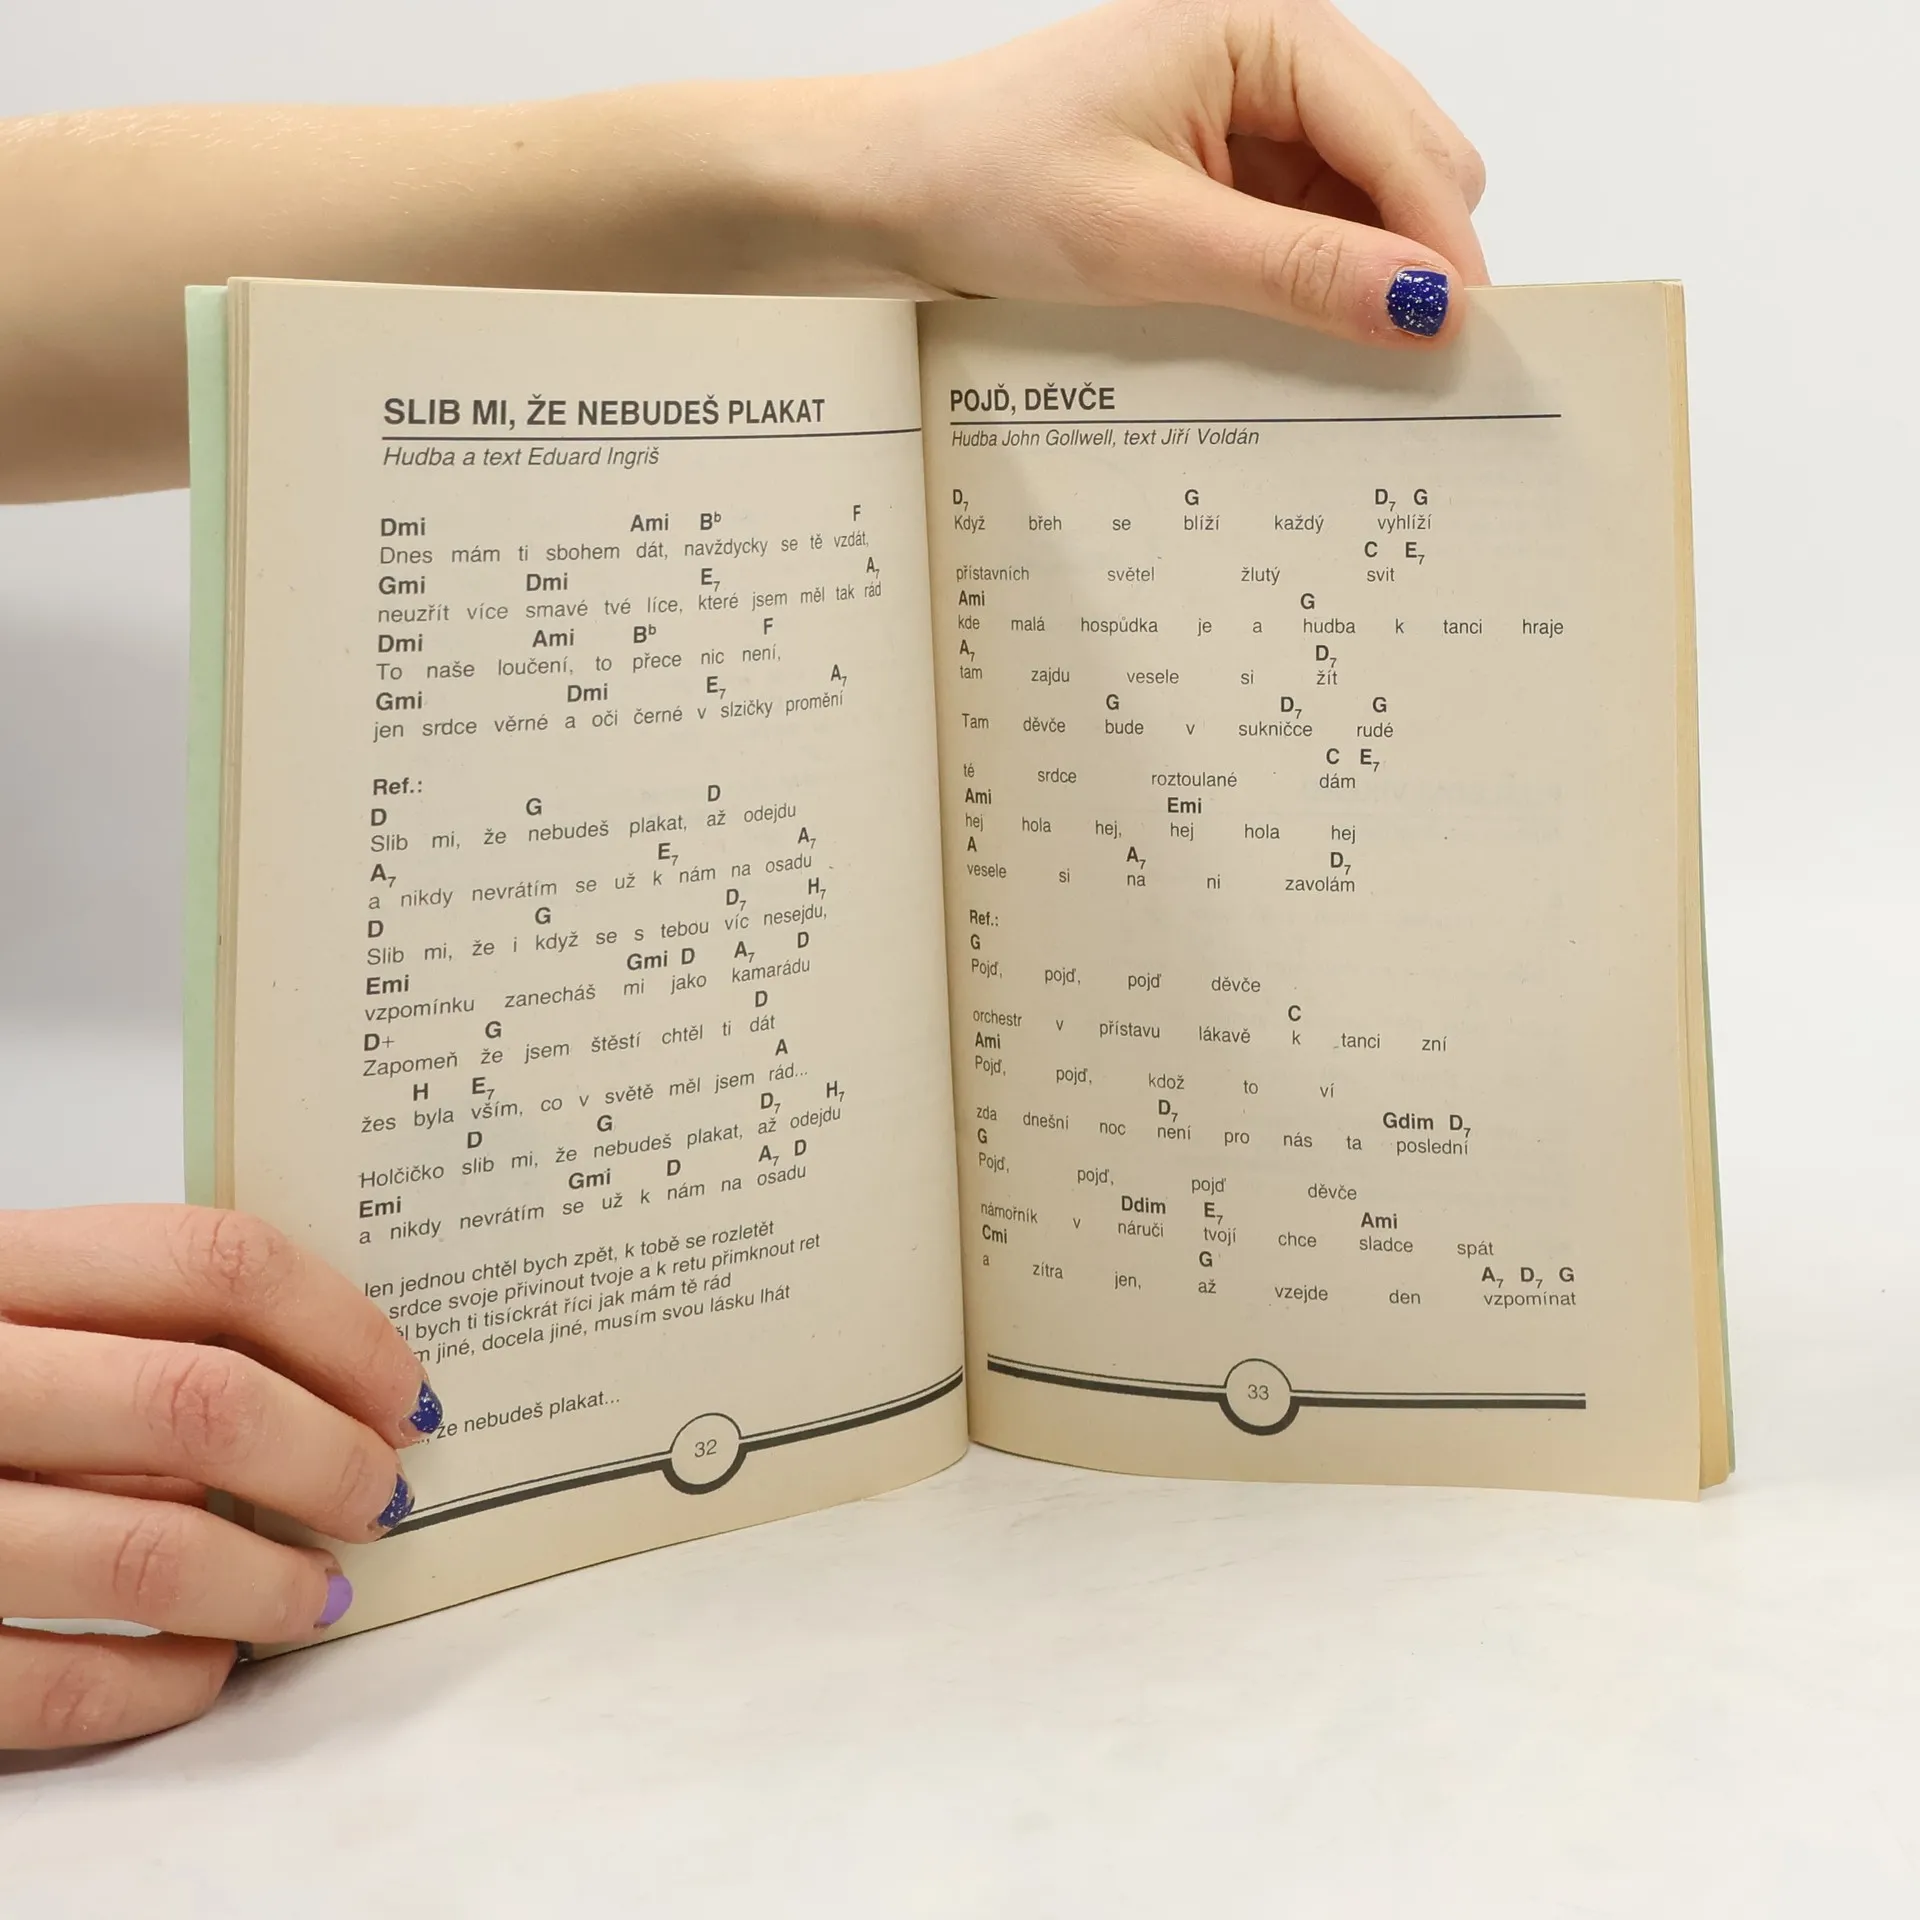 SLIB MI, ŽE NEBUDEŠ PLAKAT
Hudba a text Eduard Ingriš
Dmi Ami Bb F
Dnes mám ti sbohem dát, navždycky se tě vzdát,
Gmi Dmi E7 A7
neuzřít více smavé tvé líce, které jsem měl tak rád
Dmi Ami Bb F
To naše loučení, to přece nic není,
Gmi Dmi E7 A7
jen srdce věrné a oči černé v slzičky promění
Ref.:
D G D
Slib mi, že nebudeš plakat, až odejdu
A7 E7 A7
a nikdy nevrátím se už k nám na osadu
D G D7 H7
Slib mi, že i když se s tebou víc nesejdu,
Emi Gmi D A7 D
vzpomínku zanecháš mi jako kamarádu
D+ G D
Zapomeň že jsem štěstí chtěl ti dát
H E7 A
žes byla vším, co v světě měl jsem rád...
D G D7 H7
Holčičko slib mi, že nebudeš plakat, až odejdu
Emi Gmi D A7 D
a nikdy nevrátím se už k nám na osadu
jednou chtěl bych zpět, k tobě se rozletět
srdce svoje přivinout tvoje a k retu přimknout ret
bych ti tisíckrát říci jak mám tě rád
jiné, docela jiné, musím svou lásku lhát
že nebudeš plakat...
32
POJĎ, DĚVČE
Hudba John Gollwell, text Jiří Voldán
D7 G D7 G
Když břeh se blíží každý vyhlíží
C E7
přístavních světel žlutý svit
Ami G
kde malá hospůdka je a hudba k tanci hraje
A7 D7
tam zajdu vesele si žít
G D7 G
Tam děvče bude v sukničce rudé
C E7
té srdce roztoulané dám
Ami Emi
hej hola hej, hej hola hej
A A7 D7
vesele si na ni zavolám
Ref.:
G
Pojď, pojď, pojď děvče
C
orchestr v přístavu lákavě k tanci zní
Ami
Pojď, pojď, kdož to ví
D7 Gdim D7
zda dnešní noc není pro nás ta poslední
G
Pojď, pojď, pojď děvče
Ddim E7 Ami
námořník v náruči tvojí chce sladce spát
Cmi G A7 D7 G
a zítra jen, až vzejde den vzpomínat
33